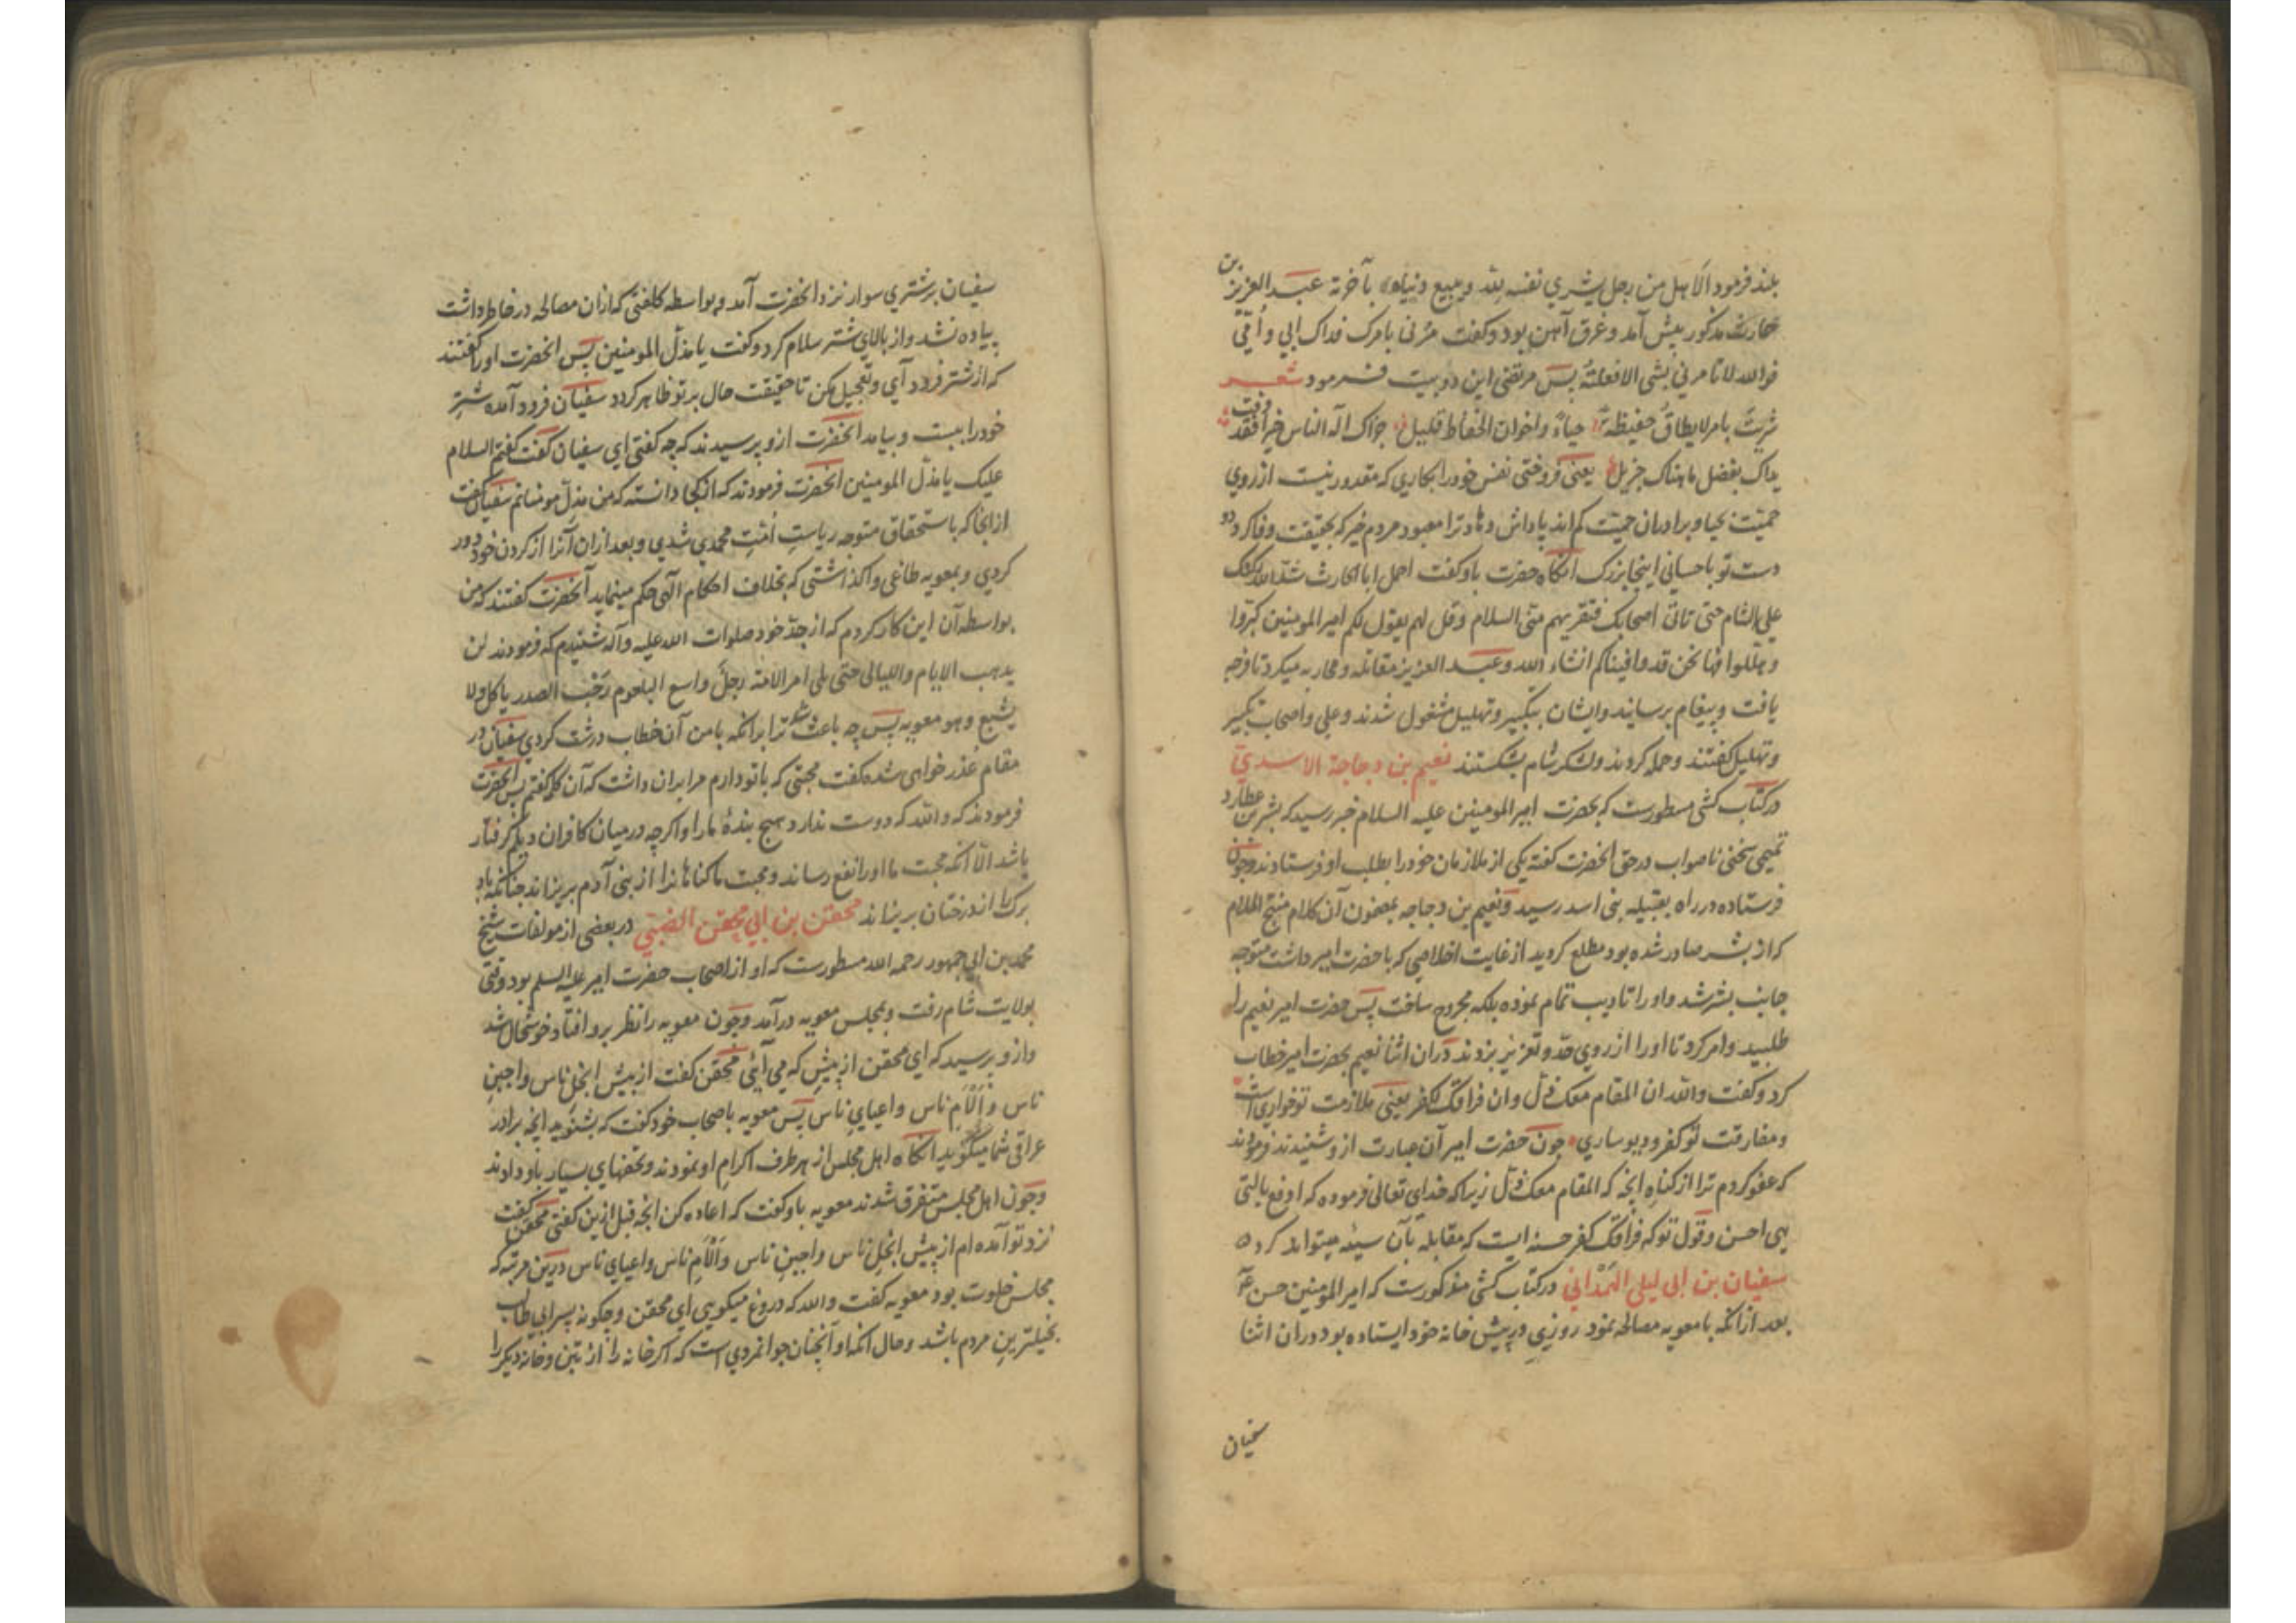 بلند فرمود الا هل من رجل یشري نفسه لله و یبیع دنیاه بآخرته عبد العزیز بن
حارث مذکور پیش آمد و غرق آهن بود و کفت مرنی بامرک فداک ابي و امّي
فوالله لا تامرني بشی الا فعلته پس مرتضی این دو بیت فرمود شعر
شریت بامر لا یطاق حفیظة حیاء و اخوان الحفاظ قلیل جزاک اله الناس خیرا فقد وفت
یداک بفضل ما هناک جزیل یعنی فروختی نفس خود را بکاري که مقدور نیست از روي
حمیّت بحیا و برادران حمیّت کم اند پاداش دهاد ترا معبود مردم خیر که بحقیقت وفا کرد دو
دست تو باحسانی اینجا بزرک آنکاه حضرت باو کفت احمل ابا الحارث شدّ الله رکنک
علی الشام حتی تاتی اصحابک فتقریهم منی السلام و قل لهم یقول لکم امیر المومنین کبّروا
و هلّلوا فها نحن قد وافیناکم انشاء الله و عبد العزیز مقاتله و محاربه میکرد تا فرجه
یافت و پیغام برسانید و ایشان بتکبیر و تهلیل مشغول شدند و علی و اصحاب تکبیر
و تهلیل کفتند و حمله کردند و لشکر شام بشکستند نعیم بن دجاجة الاسدي
در کتاب کشی مسطورست که بحضرت امیر المومنین علیه السلام خبر رسید که بشر بن عطارد
تمیمی سخنی ناصواب در حق انحضرت کفته یکی از ملازمان خود را بطلب او فرستادند و چون
فرستاده در راه بقبیله بنی اسد رسید و نعیم بن دجاجه بمضمون آن کلام منتج الملام
که از بشر صادر شده بود مطلع کردید از غایت اخلاصی که با حضرت امیر داشت متوجه
جانب بشر شد و او را تادیب تمام نموده بلکه مجروح ساخت پس حضرت امیر نعیم را
طلبید و امر کرد تا او را از روي حدّ و تعزیز بزدند دران اثنا نعیم بحضرت امیر خطاب
کرد و کفت والله ان المقام معک ذلّ و ان فراقک لکفر یعنی ملازمت تو خواري است
و مفارقت تو کفر و چون حضرت امیر آن عبارت ازو شنیدند فرمودند
که عفو کردم ترا از کناه انچه که المقام معک ذلّ زیرا که خداي تعالی فرموده که ادفع بالتی
هی احسن و قول تو که فراقک کفر حسنه ایست که مقابله بآن سیئه میتواند کرد
سفیان بن ابی لیلی الهمداني در کتاب کشی مذکورست که امیر المومنین حسن
بعد از انکه با معویه مصالحه نمود روزي در پیش خانه خود ایستاده بود دران اثنا
سفیان
سفیان بر شتري سوار نزد انحضرت آمد و بواسطه کلفتی که ازان مصالحه در خاطر داشت
پیاده نشد و از بالاي شتر سلام کرد و کفت یا مذلّ المومنین پس انحضرت او را کفتند
که از شتر فرود آي و تعجیل مکن تا حقیقت حال بر تو ظاهر کردد سفیان فرود آمده شتر
خود را ببست و بیامد انحضرت ازو پرسیدند که چه کفتی اي سفیان کفت کفتم السلام
علیک یا مذلّ المومنین انحضرت فرمودند که از کجا دانسته که من مذلّ مومنانم سفیان کفت
از انجا که باستحقاق متوجه ریاست امّت محمدي شدي و بعد ازان آنرا از کردن خود دور
کردي و بمعویه طاغی واکذاشتی که بخلاف احکام الهی حکم مینماید آنحضرت کفتند که من
بواسطه آن این کار کردم که از جدّ خود صلوات الله علیه و آله شنیدم که فرمودند لن
یذهب الایام و اللیالی حتی یلی امر الامّة رجل واسع البلعوم رحب الصدر یاکل ولا
یشبع و هو معویه پس چه باعث شد ترا برانکه با من آن خطاب درشت کردي سفیان در
مقام عذر خواهی شده کفت محبتی که با تو دارم مرا بران داشت که آن کلمه کفتم پس انحضرت
فرمودند که والله که دوست ندارد هیچ بندهٔ ما را و اکرچه در میان کافران دیلم کرفتار
باشد الّا انکه محبت ما او را نفع رساند و محبت ما کناهانرا از بنی آدم بریزاند چنانکه باد
برک را از درختان بریزاند محقن بن ابي محقن الضبّي در بعضی از مولفات شیخ
محمد بن ابی جمهور رحمه الله مسطورست که او از اصحاب حضرت امیر علیه السلم بود وقتی
بولایت شام رفت و بمجلس معویه درآمد و چون معویه را نظر برو افتاد خوشحال شد
و ازو پرسید که اي محقن از پیش که می آئی محقن کفت از پیش ابخل ناس و اجبن
ناس و اَلأَم ناس و اعیاي ناس پس معویه باصحاب خود کفت که بشنوید انچه برادر
عراقی شما میکوید آنکاه اهل مجلس از هر طرف اکرام او نمودند و تحفهاي بسیار باو دادند
و چون اهل مجلس متفرق شدند معویه باو کفت که اعاده کن انچه قبل ازین کفتی محقن کفت
نزد تو آمده ام از پیش ابخل ناس و اجبن ناس و اَلأَم ناس و اعیاي ناس درین مرتبه که
مجلس خلوت بود معویه کفت والله که دروغ میکویی اي محقن و چکونه پسر ابی طالب
بخیلترین مردم باشد و حال انکه او آنچنان جوانمردي است که اکر خانه را از تبن و خانه دیکر را